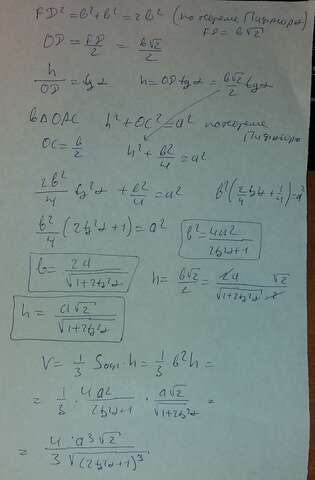 FD² = b² + b² = 2b² (по теореме Пифагора)
FD = b√2
OD = FD/2 = b√2/2
h/OD = tgα h = OD tgα = b√2/2 tgα
в △OAC h² + OC² = a² по теореме Пифагора
OC = b/2 h² + b²/4 = a²
2b²/4 tg²α + b²/4 = a² b²(2/4 tg²α + 1/4) = a²
b²/4 (2tg²α + 1) = a² b² = 4a²/2tg²α+1
b = 2a/√1+2tg²α h = b√2/2 = 2a/√1+2tg²α √2/2
h = a√2/√1+2tg²α
V = 1/3 Sосн · h = 1/3 b²h =
= 1/3 · 4a²/2tg²α+1 · a√2/√1+2tg²α =
= 4 · a³√2/3√(2tg²α+1)³